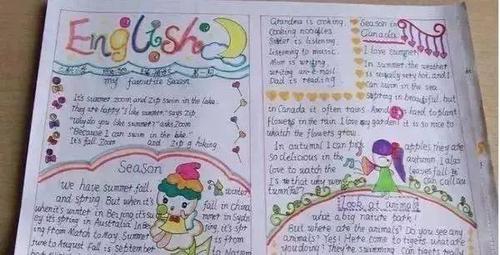 English
my favourite Season
It's summer. zoom and Zip swim in the lake.
They are happy. "I like summer," says Zip
"Why do you like summer?" asks Zoom
"Because I can swim in the lake."
It's fall. Zoom and Zip g hiking
Season
we have summer fall, winter
and spring. But when it's fall in China,
when it's winter in Beijing it's summer in Sydn
ey its spring in Australia. In Beijing, it's spr
ing from March to May. Summer is from
June to August Fall is September to Nov
Grandma is cooking,
Cooking noodles
Sister is listening,
Listening to music.
Mum is writing,
writing an e-mail.
Dad is reading
Season in
Canada
I love summer
In summer the weather
is usually very hot, and I
can swim in the sea
Spring is beautiful, but
in Canada it often rains hard to plant
flowers in the rain. I love my garden! it is so nice to
watch the flowers grow.
In autumn I can pick apples, they are
so delicious in the autumn. I also
love to watch the leaves fall.
Is that why we can call au
tumn fall?
Look at animals
what a big nature park!
But where are the animals? Do you see any
animals? Yes! Here come to tigers what are
you doing? They're swimming. Can tigers really